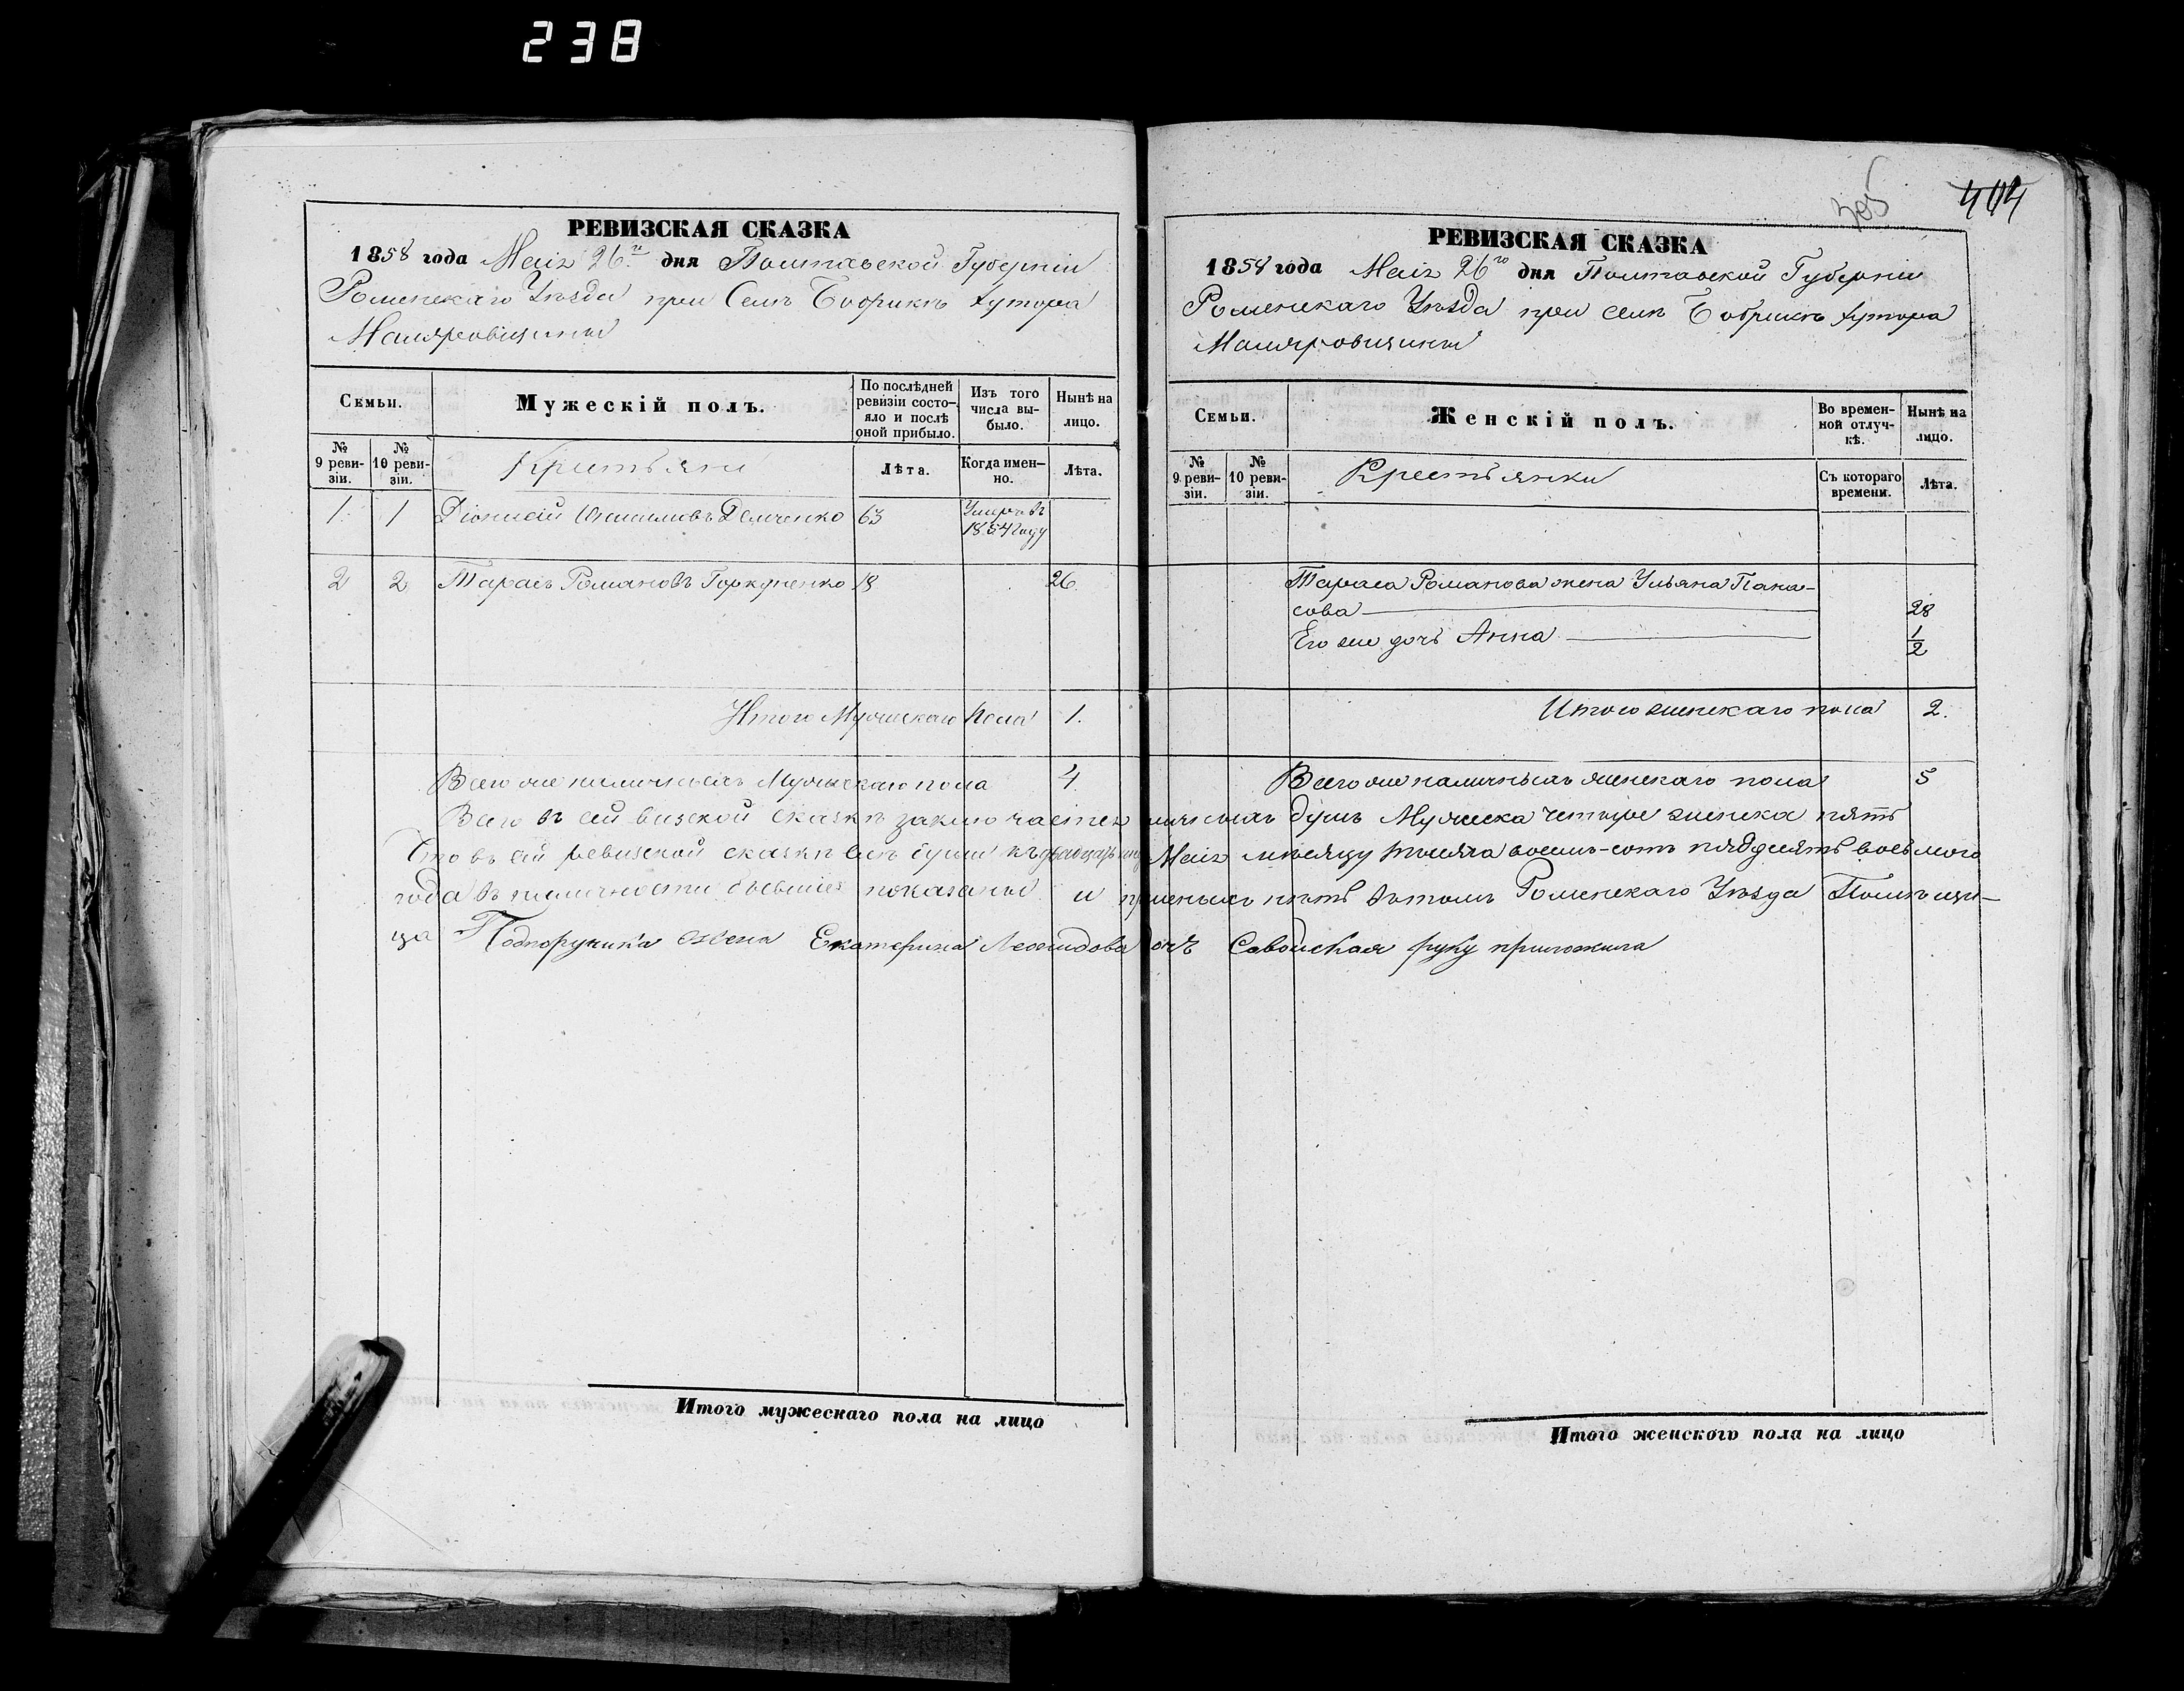 238
РЕВИЗСКАЯ СКАЗКА
1858 года Маія 26го дня Полтавской Губерніи
Роменскаго Уѣзда при Селѣ Бобрикѣ хутора
Маляровщины
Семьи.
Мужескій полъ.
По послѣдней ревизіи состо-яло и послѣ оной прибыло.
Изъ того числа вы-было.
Нынѣ на лицо.
№ 9 реви-зіи.
№ 10 реви-зіи.
Крестьяни
Лѣта.
Когда имен-но.
Лѣта.
1 1 Діонисій Демченко 63 Умеръ въ
1854 году
2 2 Тарасъ Романовъ Горкуненко 18 26
Итого Мужескаго Пола 1.
Всего же наличныхъ Мужескаго пола 4
Итого мужескаго пола на лицо
305 404
РЕВИЗСКАЯ СКАЗКА
1858 года Маія 26го дня Полтавской Губерніи
Роменскаго Уѣзда при селѣ Бобрикѣ хутора
Маляровщины
Семьи.
Женскій полъ.
Во времен-ной отлуч-кѣ.
Нынѣ на лицо.
№ 9 реви-зіи.
№ 10 реви-зіи.
Крестьянки
Съ котораго времени.
Лѣта.
Тараса Романова жена Ульяна Пана-
сова 28
Его же дочь Анна 1/2
Итого женскаго пола 2.
Всего же наличныхъ женскаго пола 5
Всего въ сей визской сказкѣ заключается душъ Мужеска четыре женска пять
Что въ сей ревизской сказкѣ всѣ души къ Маія мѣсяцу тысяча восемь-сотъ пяддесятъ восьмого
года въ наличности бывшіе показаны и Роменскаго Уѣзда Помѣщи-
ца Подпоручика жена Екатерина Леонидова дочь Савойская руку приложила
Итого женскаго пола на лицо